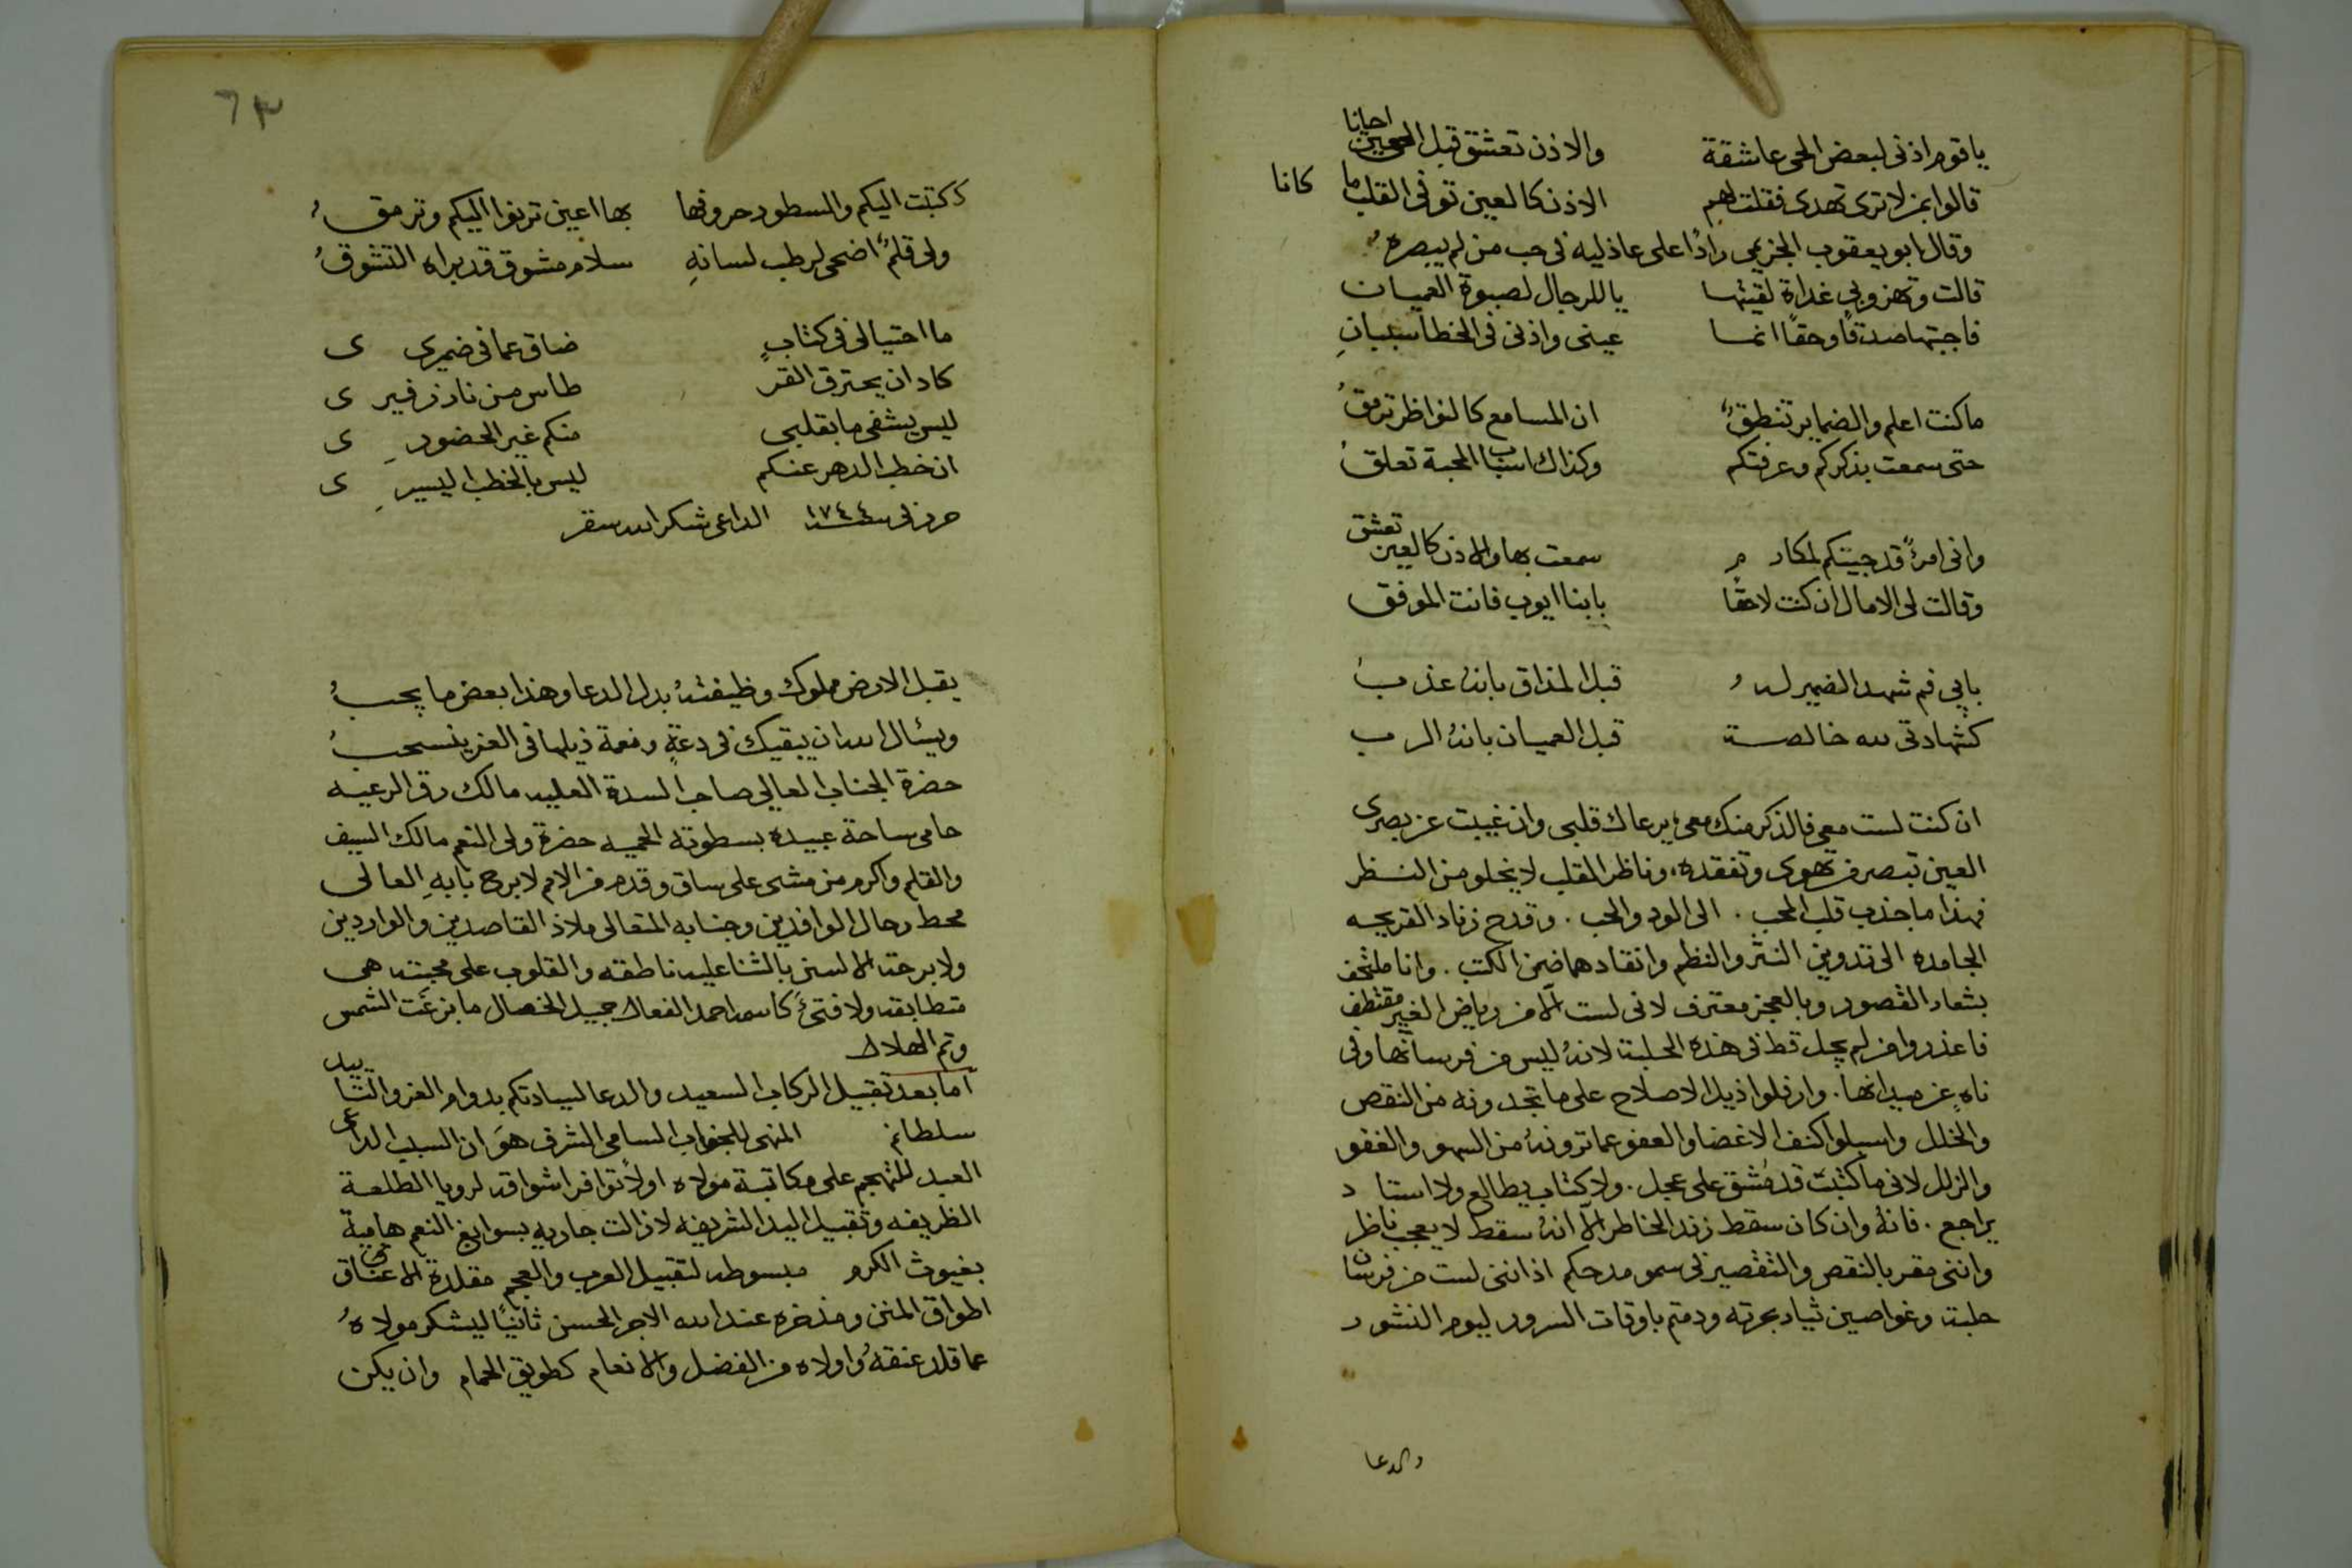 يا قوم اذنى لبعض الحى عاشقة والاذن تعشق قبل العين احيانا
قالوا بمن لا ترى تهدى فقلت لهم الاذن كالعين توفى القلب ما كانا
وقال ابو يعقوب الخزيمى رادًا على عاذليه فى حب من لم يبصره
قالت وتهزو بى غداة لقيتها يا للرجال لصبوة العميان
فاجبتها صدقًا وحقًا انما عينى واذنى فى الخطا سيان
ما كنت اعلم والضماير تنطق ان المسامع كالنواظر ترمق
حتى سمعت بذكركم وعرفتكم وكذاك اسباب المحبة تعلق
وانى امرءً قد جيتكم لمكارم سمعت بها والاذن كالعين تعشق
وقالت لى الامال ان كنت لاحقًا بابنا ايوب فانت الموفق
بابى فم شهد الضمير له قبل المذاق بانهُ عذب
كشهادتى لله خالصة قبل العميان بانهُ الرب
ان كنت لست معى فالذكر منك معى يرعاك قلبى وان غيبت عن بصرى
العين تبصر من تهوى وتفقده، وناظر القلب لا يخلو من النظر
فهذا ما جذب قلب المحب . الى الود والحب . وقدح زناد القريحه
الجامده الى تدوين النثر والنظم وانتقادهما ضمن الكتب . وانا ملتحف
بشعار القصور وبالعجز معترف لانى لست الّا من رياض الغير مقتطف
فاعذروا من لم يجل قط فى هذه الحلبة لانهُ ليس من فرسانها وفى
ناهٍ عن ميدانها . وارفلوا ذيل الاصلاح على ما تجدونه من النقص
والخلل واسبلوا كنف الاغضا والعفو عما ترونهُ من السهو والغفو
والزلل لانى ما كتبت قد مُشق على عجل . ولا كتاب يطالع ولا استاد
يراجع . فانهُ وان كان سقط زند الخاطر الّا انهُ سقط لا يعجب ناظر
واننى مقر بالنقص والتقصير فى سمو مدحكم اذ اننى لست من فرسان
حلبته وغواصين تيار بحرته ودمتم باوقات السرور ليوم النشور
والدعا
٦٣
كتبت اليكم والسطور حروفها بها اعين ترنوا اليكم وترمق
ولى قلمٌ اضحى لرطب لسانهِ سلام مشوق قد براه التشوقُ
ما احتيالى فى كتابٍ ضاق عما فى ضميرى ى
كاد ان يحترق القر طاس من نار زفير ى
ليس يشفى ما بقلبى منكم غير الحضور ى
ان خطب الدهر عنكم ليس بالخطب اليسير ى
حرر فى سنة ١٧٤٤ الداعى شكرالله سقر
يقبل الارض مملوك وظيفتهُ بدل الدعا وهذا بعض ما يجبُ
ويسٔال الله ان يبقيك فى دعةٍ ونعمة ذيلها فى العز ينسحبُ
حضرة الجناب العالى صاحب السدة العليه مالك رق الرعيه
حامى ساحة عبيده بسطوته الحميه حضرة ولى النعم مالك السيف
والقلم واكرم من مشى على ساق وقدم من الامم لا برح بابهِ العالى
محط رحال الوافدين وجنابه المتعالى ملاذ القاصدين والواردين
ولا برحت الالسن بالثنا عليه ناطقه والقلوب على محبته هى
متطابقه ولا فتئَ كاسمه احمد الفعال جميل الخصال ما بزغَت الشمس
وتم الهلال
اما بعد تقبيل الركاب السعيد والدعا لسيادتكم بدوام العز والتاييد
سلطانم المنهى للجناب السامى الشرف هوَ ان السبب الداعى
العبد للتهجم على مكاتبة مولاه اولًا توافر اشواقه لرويا الطلعة
الظريفه وتقبيل اليد الشريفه لا زالت جاريه بسوابغ النعم هامية
بغيوث الكرم مبسوطه لتقبيل العرب والعجم مقلدة الاعناق
اطواق المنن ومذخره عند الله الاجر الحسن ثانيًا ليشكر مولاهُ
عما قلد عنقهُ واولاه من الفضل والانعام كطويق الحمام وان يكن